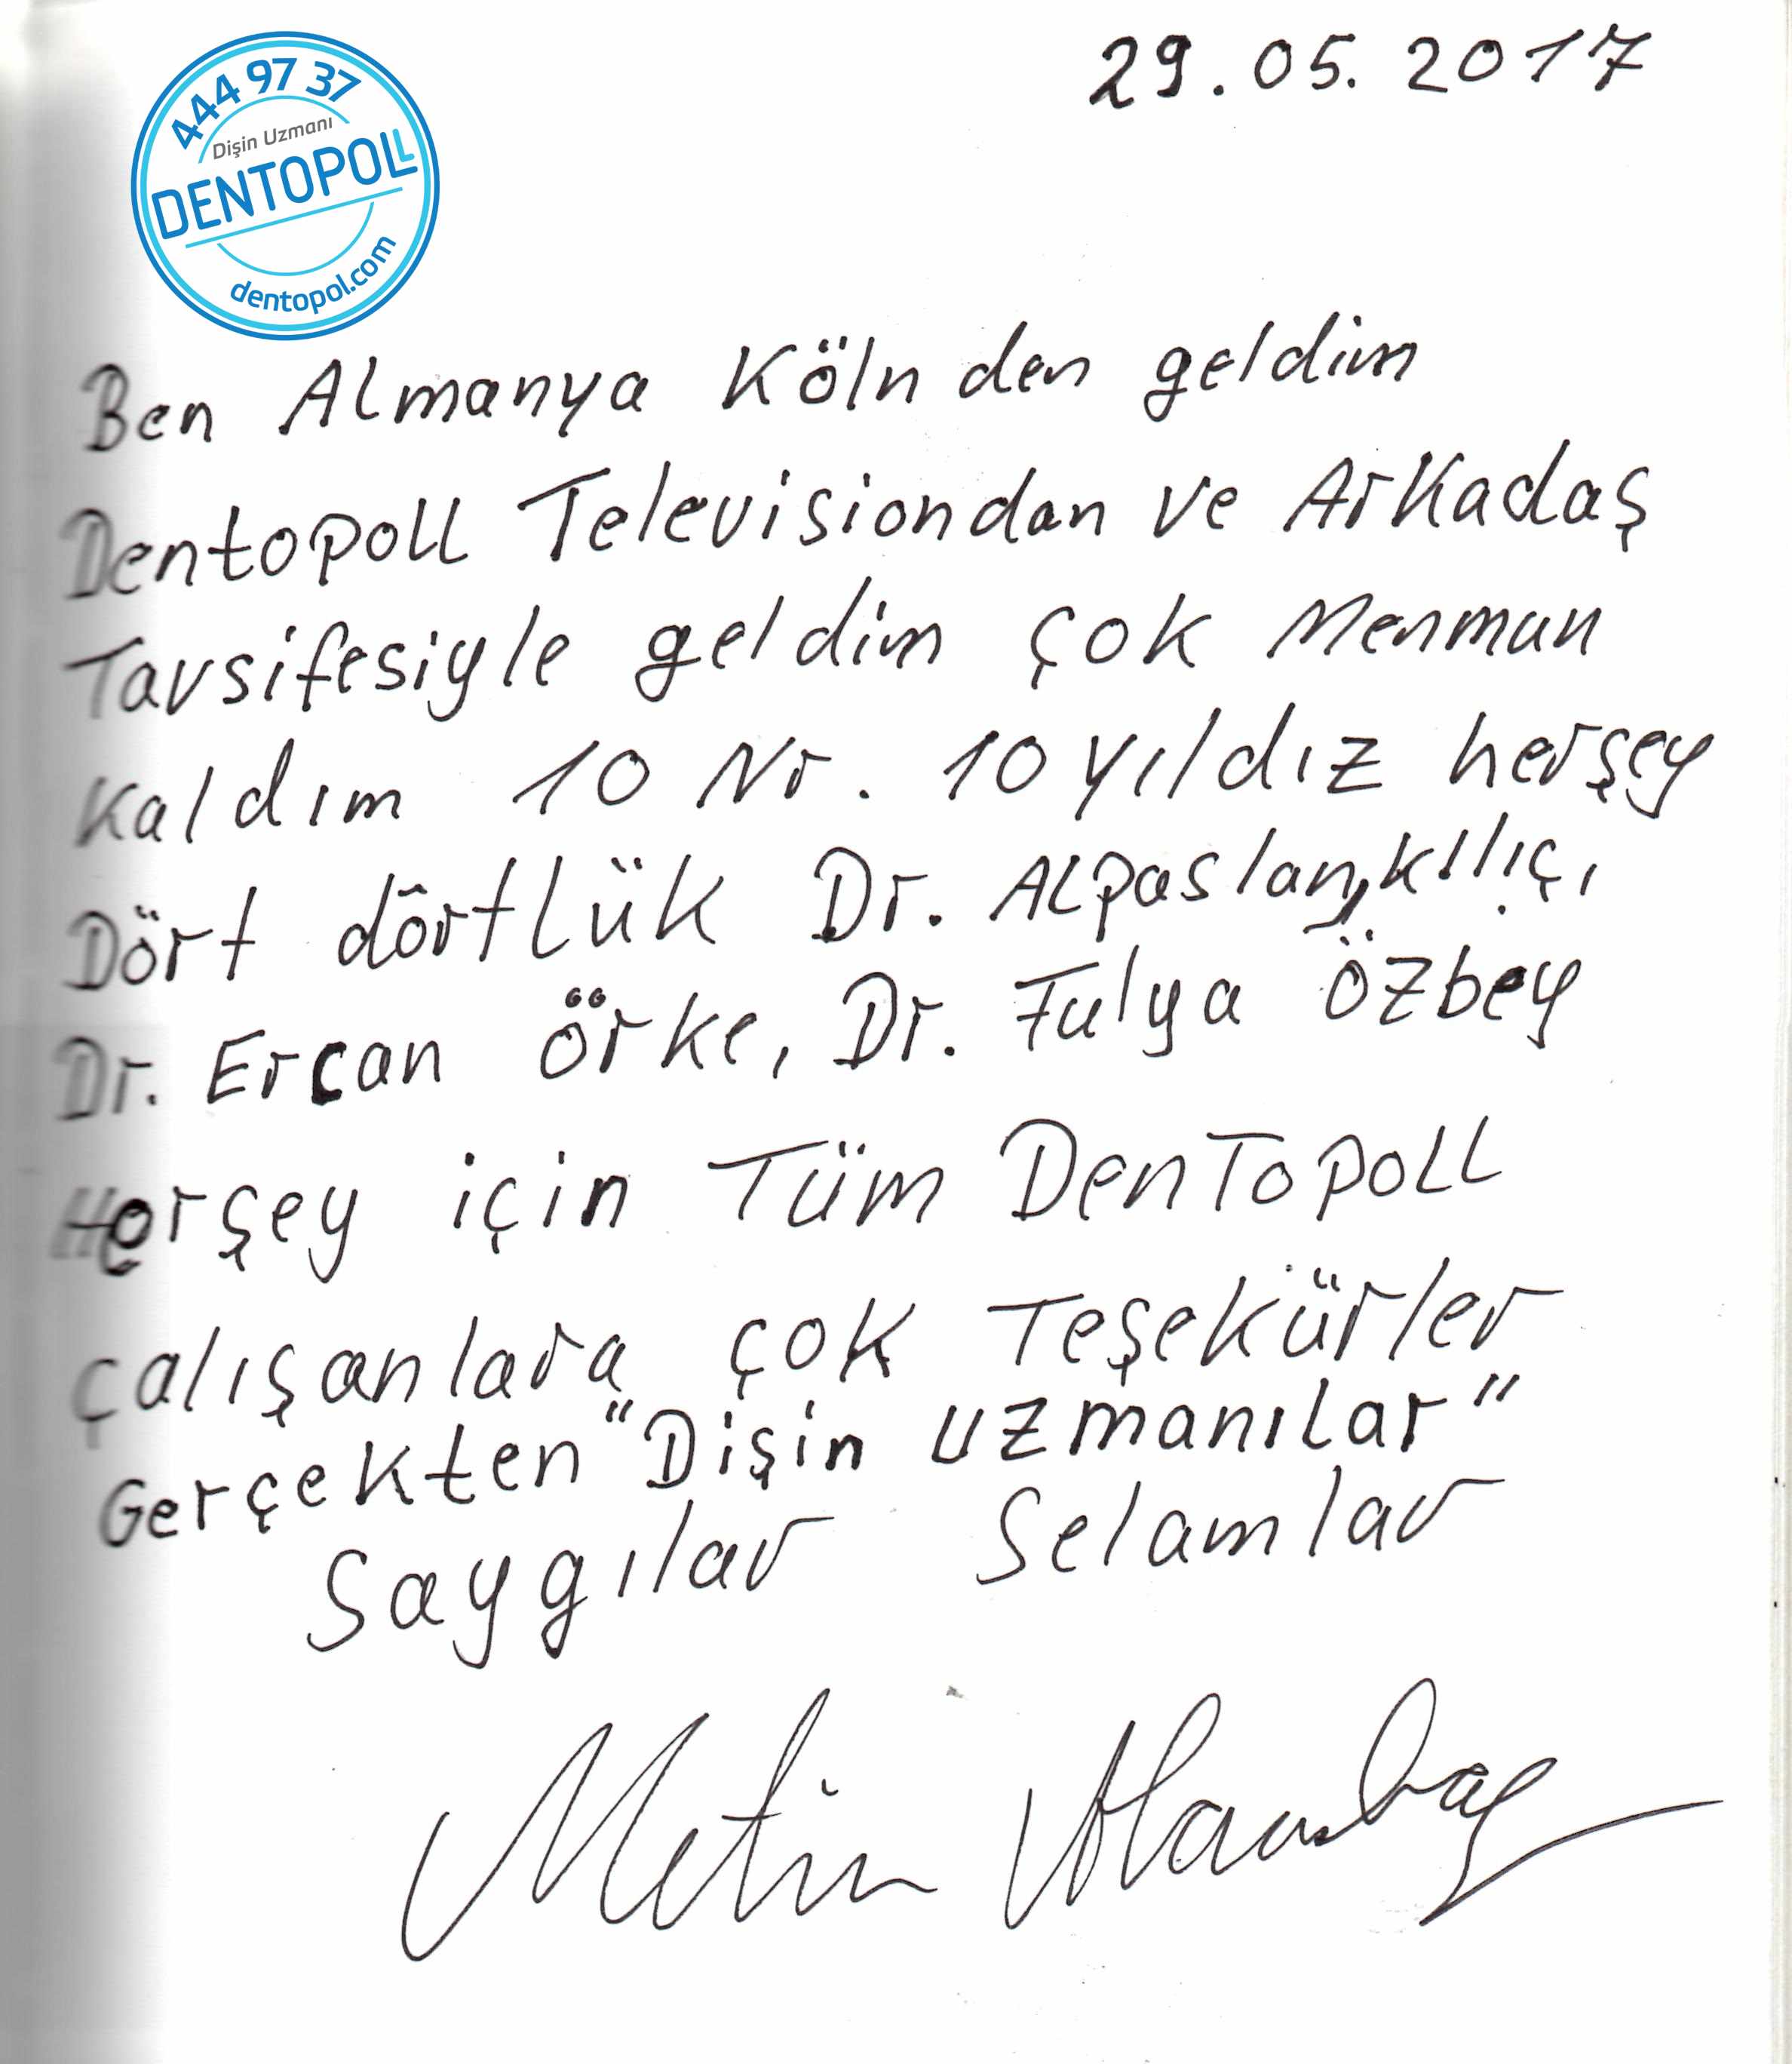 444 97 37
Dişin Uzmanı
DENTOPOLL
dentopol.com
29.05.2017
Ben Almanya Köln den geldim
Dentopoll Televisiondan ve Arkadaş
Tavsifesiyle geldim çok Menmun
Kaldım 10 Nr. 10 yıldız herşey
Dört dörtlük Dr. Alpaslan,kılıçı
Dr. Ercan örke, Dr. Fulya özbey
Herşey için Tüm DenTopoll
çalışanlara çok Teşekürler
Gerçekten "Dişin uzmanılar"
Saygılar Selamlar
Metin